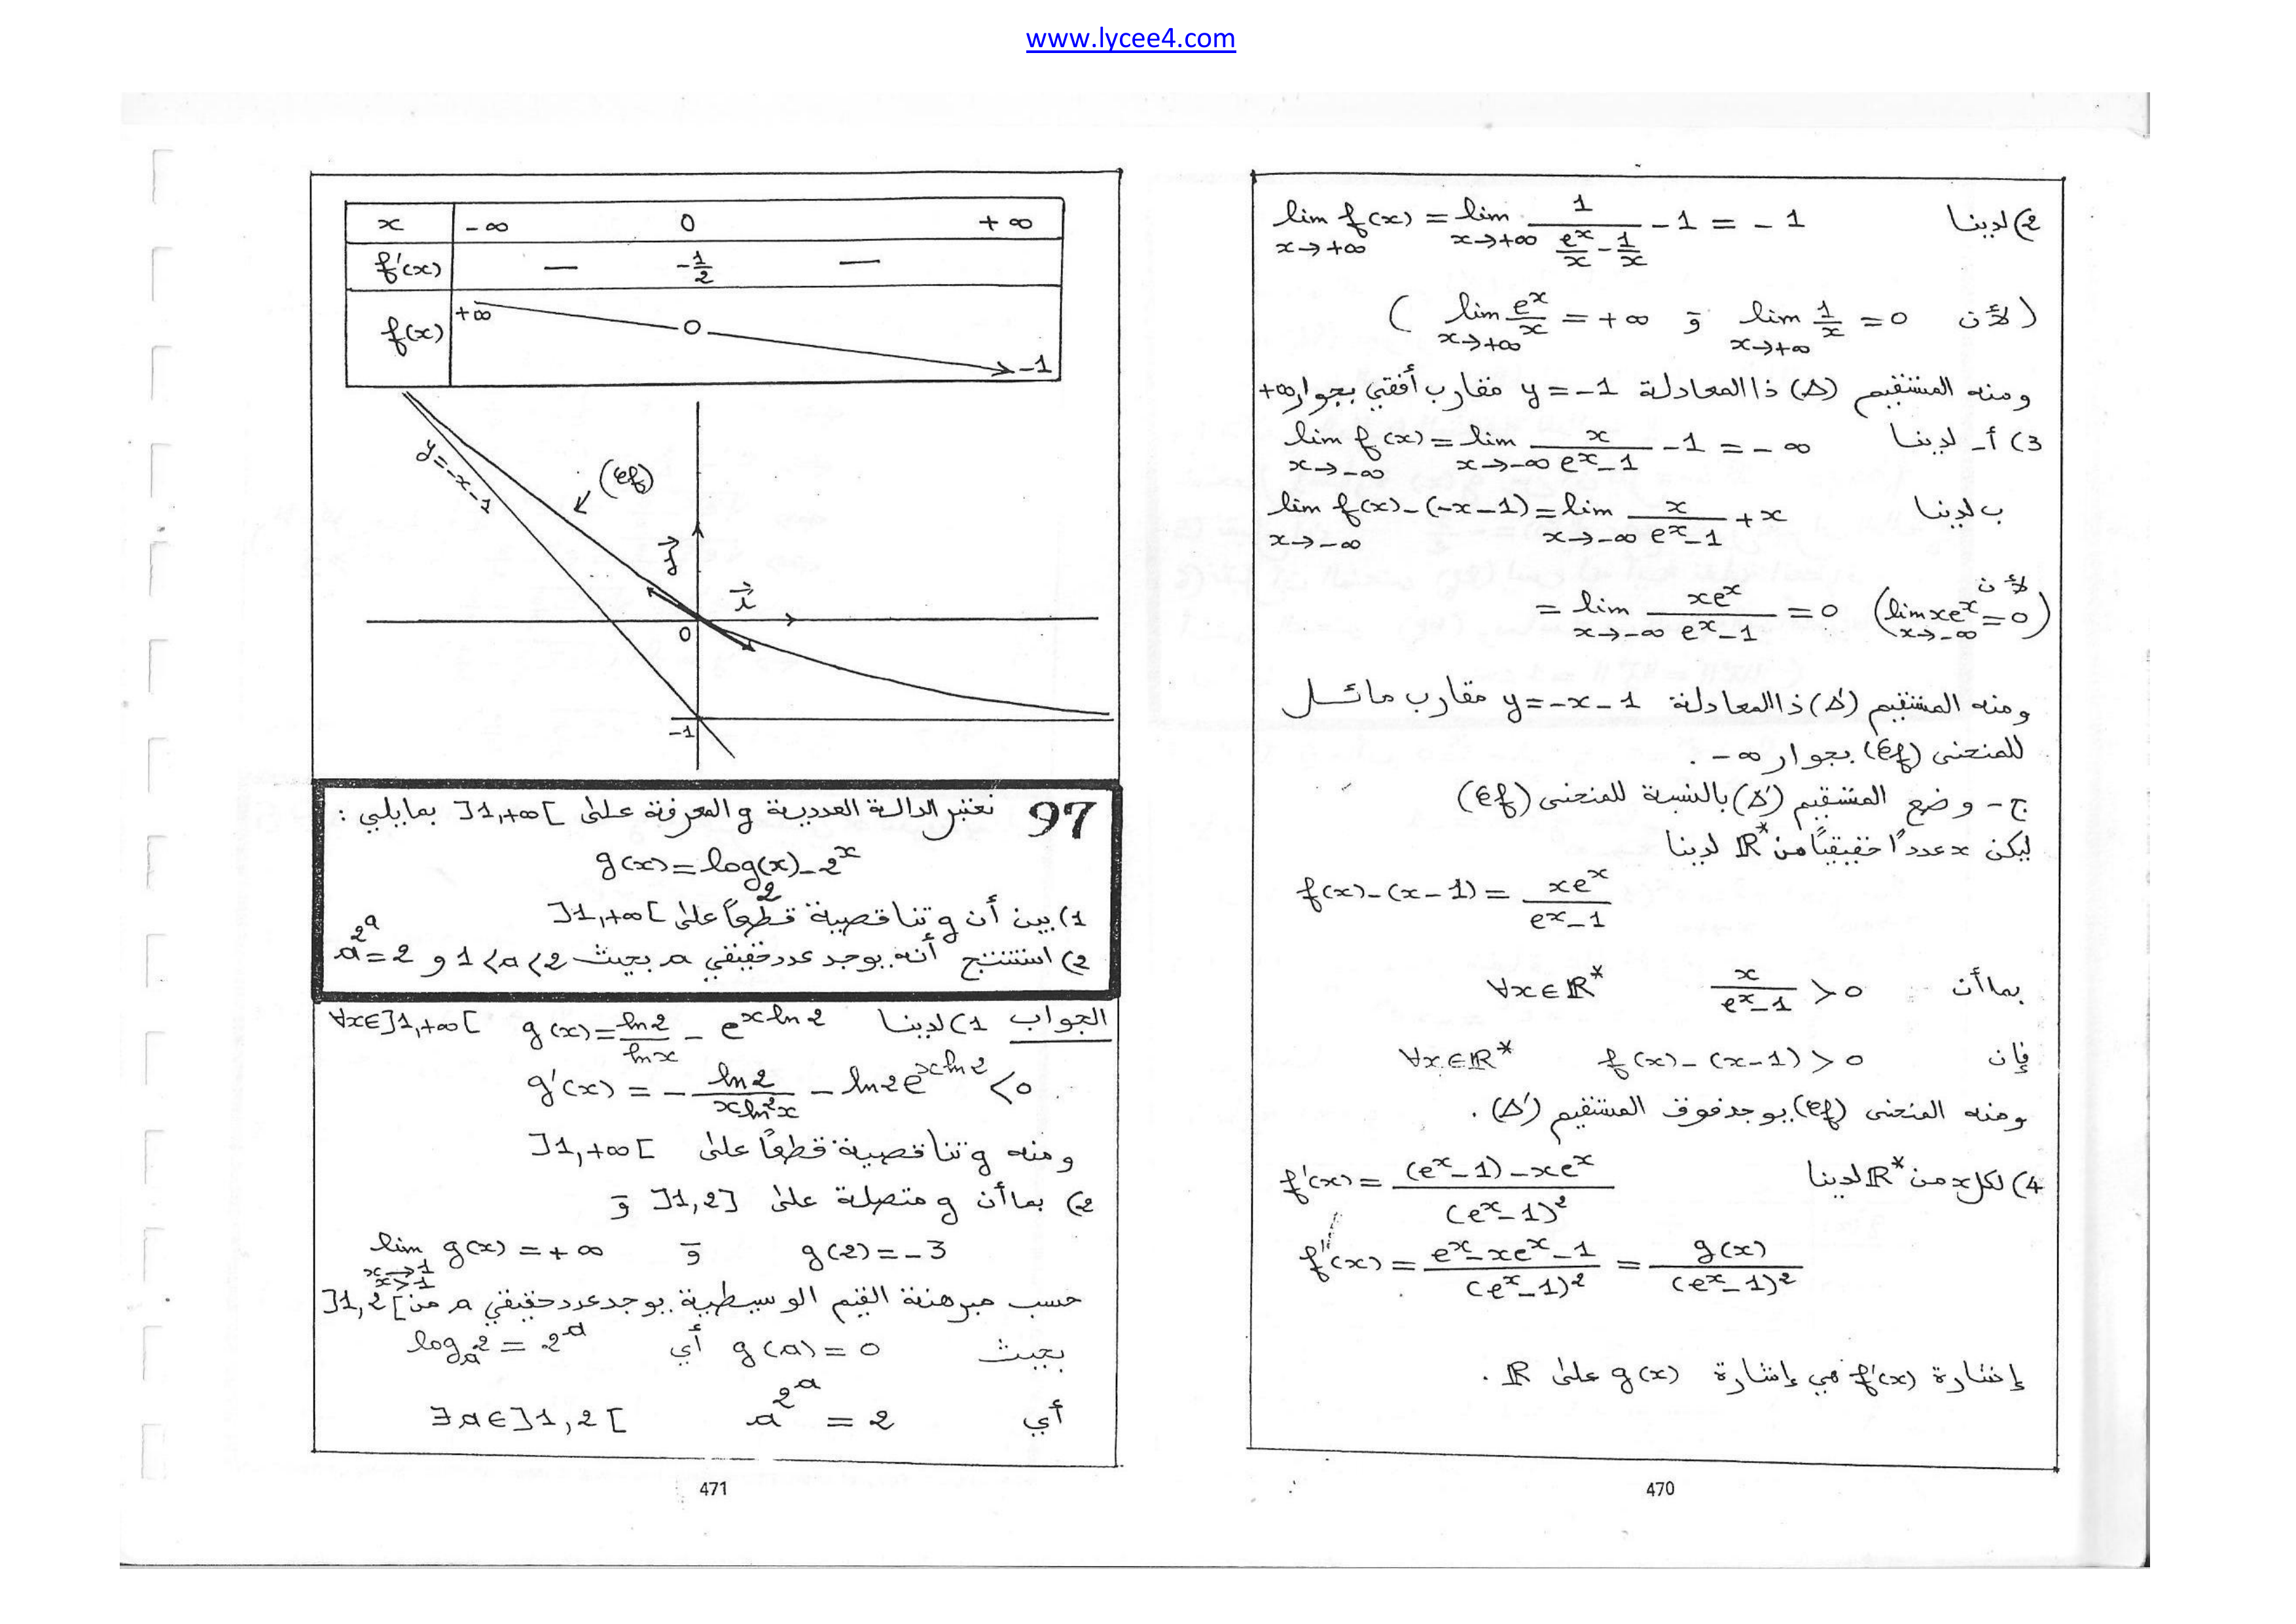 www.lycee4.com
2) لدينا lim f(x) = lim 1/(e^x/x - 1/x) - 1 = -1
x→+∞ x→+∞
(لأن lim 1/x = 0 و lim e^x/x = +∞)
x→+∞ x→+∞
ومنه المستقيم (Δ) ذا المعادلة y = -1 مقارب أفقي بجوار +∞
3) أ- لدينا lim f(x) = lim x/(e^x - 1) - 1 = -∞
x→-∞ x→-∞
ب لدينا lim f(x) - (-x-1) = lim x/(e^x - 1) + x
x→-∞ x→-∞
لأن
= lim xe^x/(e^x - 1) = 0 (lim xe^x = 0)
x→-∞ x→-∞
ومنه المستقيم (Δ') ذا المعادلة y = -x-1 مقارب مائل
للمنحنى (Cf) بجوار -∞ .
ج - وضع المستقيم (Δ') بالنسبة للمنحنى (Cf)
ليكن x عدداً حقيقياً من ℝ* لدينا
f(x) - (x-1) = xe^x/(e^x - 1)
بما أن x/(e^x - 1) > 0 ∀x∈ℝ*
فإن f(x) - (x-1) > 0 ∀x∈ℝ*
ومنه المنحنى (Cf) يوجد فوق المستقيم (Δ') .
4) لكل x من ℝ* لدينا f'(x) = ((e^x - 1) - xe^x)/(e^x - 1)²
f'(x) = (e^x - xe^x - 1)/(e^x - 1)² = g(x)/(e^x - 1)²
إشارة f'(x) هي إشارة g(x) على ℝ .
470
x -∞ 0 +∞
f'(x) — -1/2 —
f(x) +∞ 0 -1
y=-x-1
(Cf)
j
i
0
-1
97 نعتبر الدالة العددية g المعرفة على ]1,+∞[ بمايلي :
g(x) = log_x(2) - 2^x
1) بين أن g تناقصية قطعاً على ]1,+∞[
2) استنتج أنه يوجد عدد حقيقي a بحيث 1<a<2 و a^(2^a) = 2
الجواب 1) لدينا g(x) = ln2/lnx - e^(xln2) ∀x∈]1,+∞[
g'(x) = - ln2/(xln²x) - ln2e^(xln2) < 0
ومنه g تناقصية قطعاً على ]1,+∞[
2) بما أن g متصلة على ]1,2] و
g(2) = -3 و lim g(x) = +∞
x→1
x>1
حسب مبرهنة القيم الوسيطية يوجد عدد حقيقي a من ]1,2[
بحيث g(a) = 0 أي log_a 2 = 2^a
أي a^(2^a) = 2 ∃a∈]1,2[
471